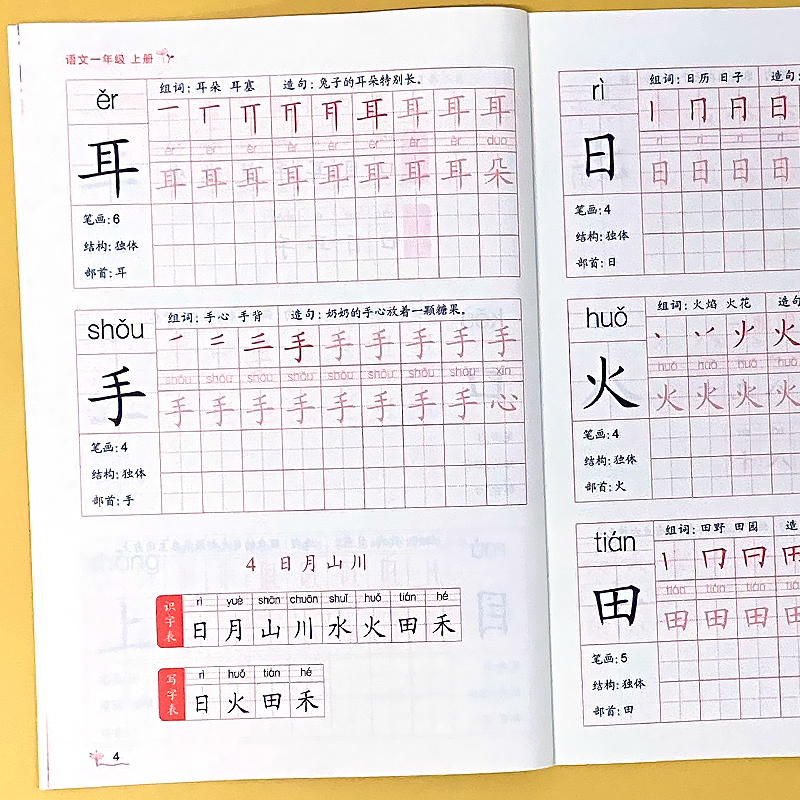 语文一年级 上册
ěr
组词：耳朵 耳塞 造句：兔子的耳朵特别长。
耳 耳 耳
ěr ěr ěr ěr ěr ěr ěr ěr duo
耳 耳 耳 耳 耳 耳 耳 耳 耳 朵
笔画：6
结构：独体
部首：耳
shǒu
组词：手心 手背 造句：奶奶的手心放着一颗糖果。
手 手 手 手 手 手
shǒu shǒu shǒu shǒu shǒu shǒu shǒu shǒu xīn
手 手 手 手 手 手 手 手 手 心
笔画：4
结构：独体
部首：手
4 日月山川
识字表
rì yuè shān chuān shuǐ huǒ tián hé
日 月 山 川 水 火 田 禾
写字表
rì huǒ tián hé
日 火 田 禾
4
rì
组词：日历 日子 造句：
日
rì rì rì rì
日 日 日 日 日
笔画：4
结构：独体
部首：日
huǒ
组词：火焰 火花 造句
火 火
huǒ huǒ huǒ huǒ
火 火 火 火 火
笔画：4
结构：独体
部首：火
tián
组词：田野 田园 造
tián tián tián tián
田 田 田 田 田
笔画：5
结构：独体
部首：田